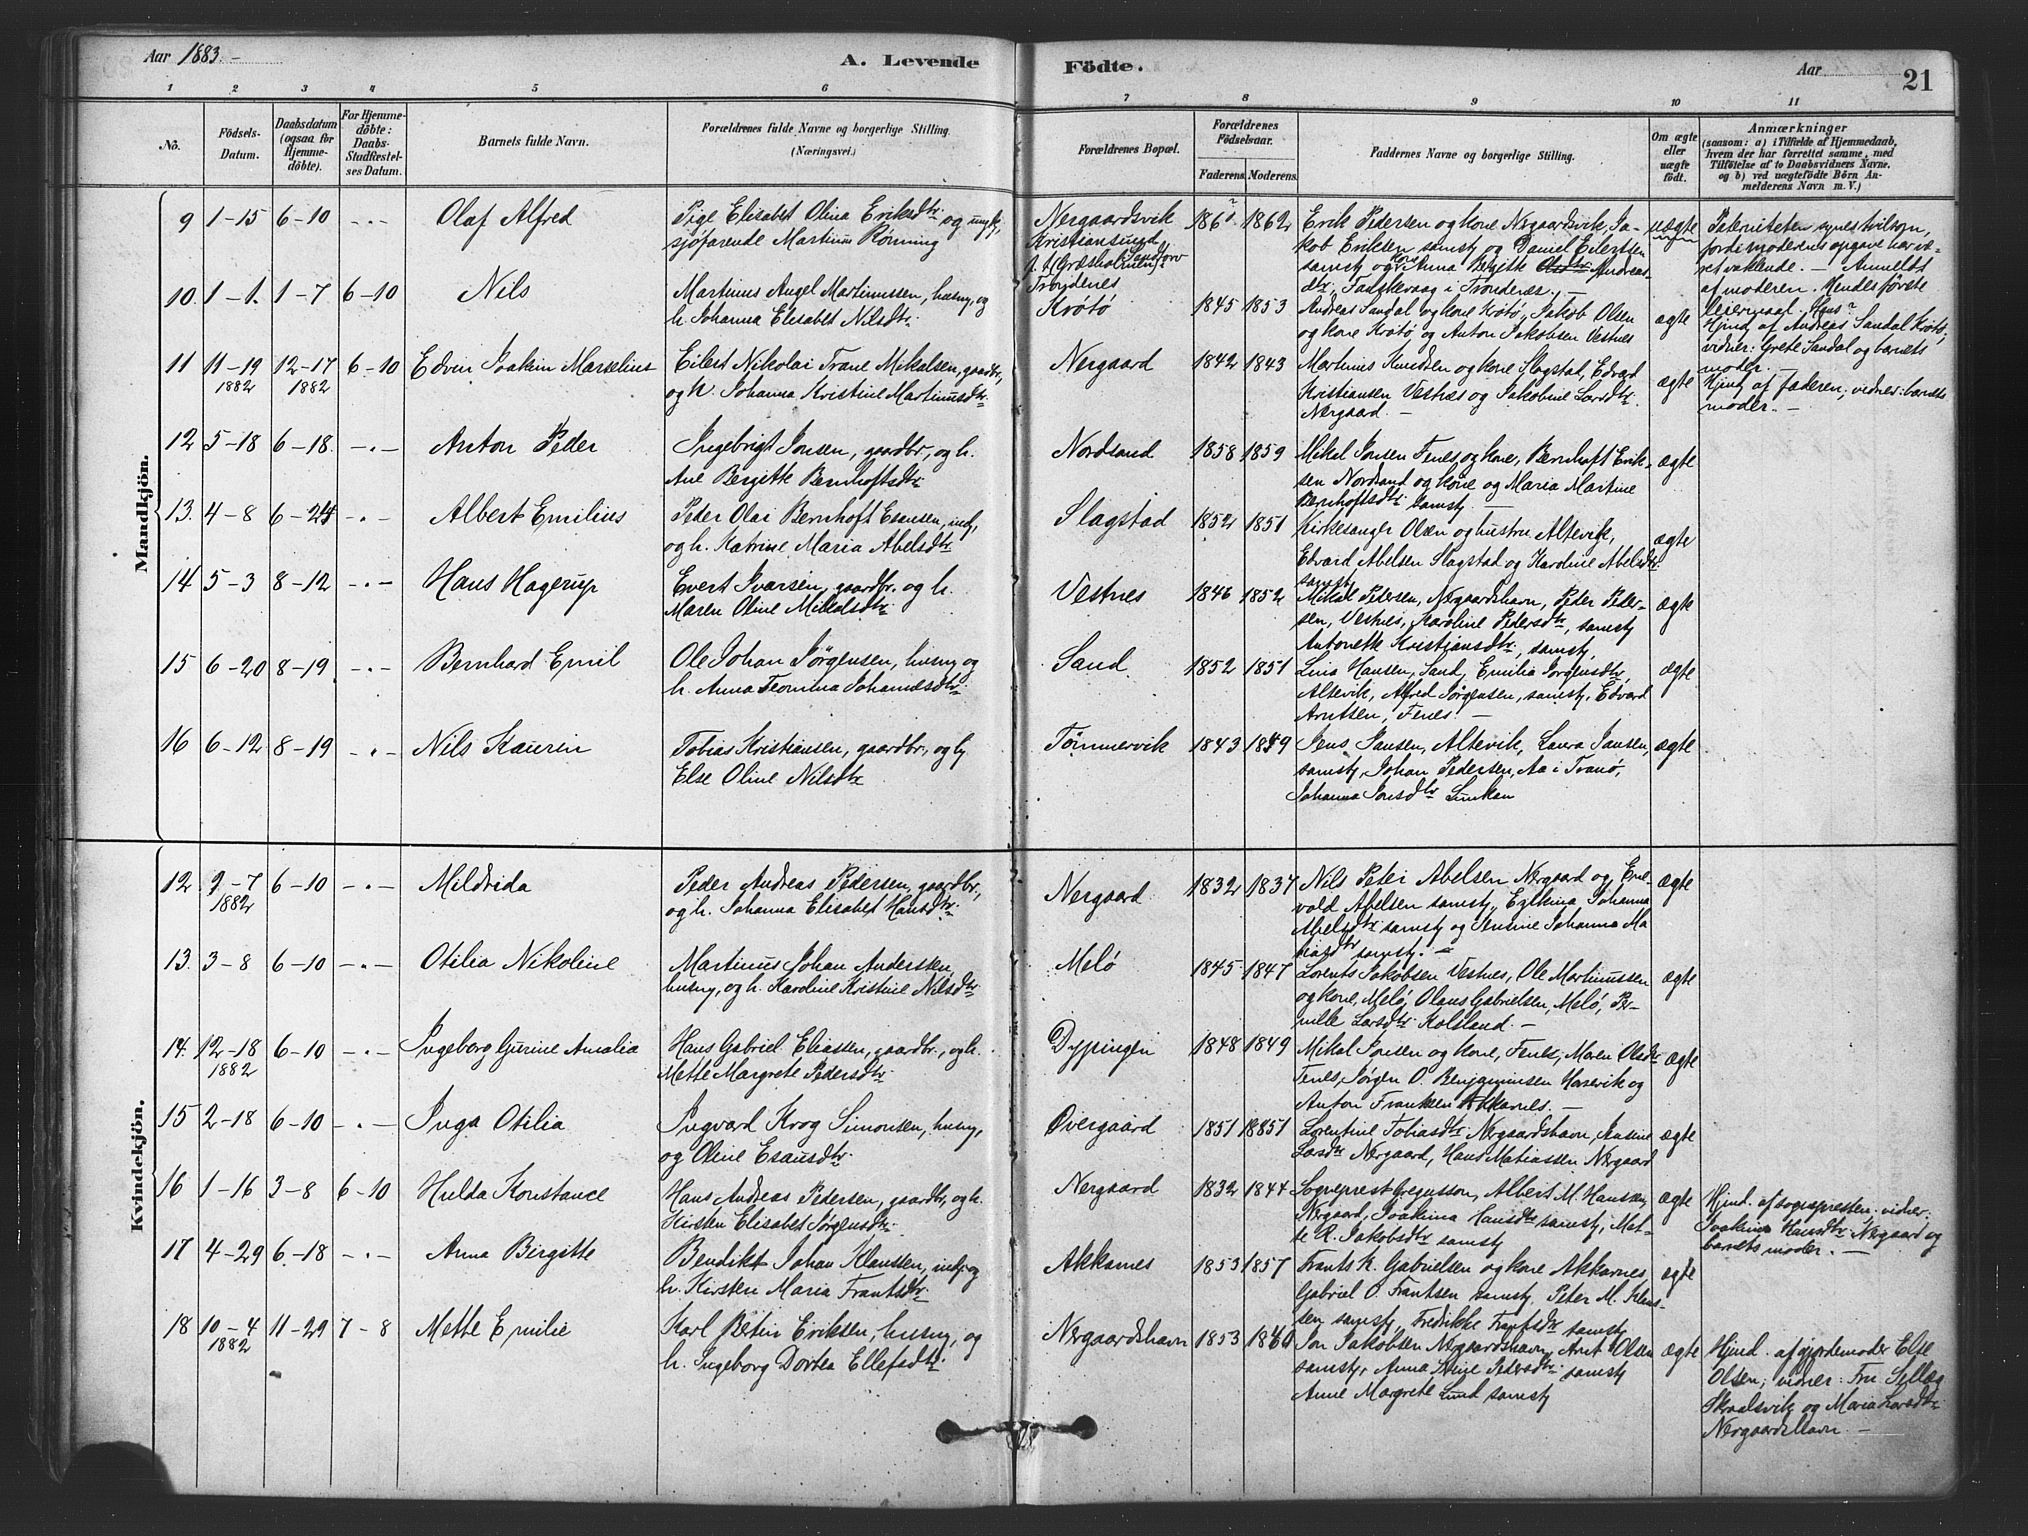 Aar 1883.-
A. Levende
Födte.
Aar
21
1 2 3 4 5 6 7 8 9 10 11
No.
Födsels-
Datum.
Daabsdatum
(ogsaa for
Hjemme-
döbte).
For Hjemme-
döbte:
Daabs-
Stadfæstel-
ses Datum.
Barnets fulde Navn.
Forældrenes fulde Navne og borgerlige Stilling.
(Næringsvei.)
Forældrenes Bopæl.
Forældrenes
Födselsaar.
Faderens. Moderens.
Faddernes Navne og borgerlige Stilling.
Om ægte
eller
uægte
födt.
Anmærkninger
(saasom: a) i Tilfælde af Hjemmedaab,
hvem der har forrettet samme, med
Tilföielse af to Daabsvidners Navne.
og b) ved uægtefödte Börn An-
melderens Navn m. V.)
Mandkjön.
9 1-15 6-10 -"- Olaf Alfred
Pige Elisabet Olina Eriksdtr og ungk,
sjöfarende Martinus Rönning
Nergaardsvik
Kristianssund
Trondenes
186 1862
Erik Pedersen og kone Nergaardsvik, Ja-
kob Eriksen samst, og Daniel Eilertsen
samst, og kone Anna Bergitte Andreas-
dtr, Faldskvaag i Trondenæs. -
uægte
Paterniteten synes tvilsom,
fordi moderens opgave har væ-
ret vaklende. - Anmeldt
af moderen. Hendes første
leiermaal. Hans?
10. 1-1. 1-7 6-10 Nils
Martinus Angel Martinussen, husm, og
h. Johanna Elisabet Nilsdtr.
Krøtø
1845 1853
Andreas Sandal og kone Krøtø, Jakob Olsen
og kone Krøtø, og Anton Jakobsen Vestnes
ægte
Hjmd. af Andreas Sandal Krøtø;
vidner: Grete Sandal og barnets
moder. -
11 11-19 12-17 6-10 Edvin Joakim Marselius
1882 1882
Eilert Nikolai Trane Mikalsen, gaardbr,
og h. Johanna Kristine Martinusdtr.
Nergaard
1842 1843
Martinus Knudsen og kone Slagstad, Edvard
Kristiansen Vestnes og Jakobine Larsdtr.
Nergaard. -
ægte
Hjmd. af faderen; vidner: barnets
moder. -
12 5-18 6-18. -"- Anton Peder
Ingebrigt Jonsen, gaardbr, og h.
Ane Bergitte Bernhoftsdtr
Nordsand
1858 1859
Mikal Jonsen Fenes og kone, Bernhoft Erik-
sen Nordsand og kone og Maria Martine
Bernhoftsdtr samst. -
ægte
13. 4-8 6-24 -"- Albert Emilius
Peder Olai Bernhoft Esausen, inds,
og h. Katrine Maria Abelsdtr
Slagstad
1852 1851
Kirkesanger Olsen og hustru Altevik,
Edvard Abelsen Slagstad og Karoline Abelsdtr
samst,
ægte
14 5-3 8-12 -"- Hans Hagerup
Evert Ivarsen, gaardbr. og h.
Maren Oline Mikalsdtr
Vestnes
1846 1852
Mikal Pedersen, Nergaardshavn, Peder Peder-
sen, Vestnes, Karoline Pedersdtr, samst,
Antonette Kristiansdtr, samst,
ægte
15 6-20 8-19 -"- Bernhard Emil
Ole Johan Jørgensen, husm, og
h. Anna Leonina Johannesdtr.
Sand
1852 1851
Lina Hansen, Sand, Emilia Jørgensdtr,
Altevik, Alfred Jørgensen, samst, Edvard
Arntsen, Fenes. -
ægte
16 6-12 8-19 -"- Nils Kaurin
Tobias Kristiansen, gaardbr, og h,
Else Oline Nilsdtr
Tømmervik
1843 1849
Jens Jansen, Altevik, Laura Jansen,
samst, Johan Pedersen, Aa i Tranø,
Johanna Jonsdtr Lunken
ægte
Kvindekjön.
12 9-7 6-10 -"- Mildrida
1882
Peder Andreas Pedersen, gaardbr,
og h. Johanna Elisabet Hansdtr.
Nergaard
1832 1837
Nils Peter Abelsen Nergaard og Ene-
vold Abelsen samst, Ezekina Johanna
Abelsdtr samst, og Ansine Johanna Ma-
tiasdtr samst. -
ægte
13. 3-8 6-10 -"- Otilia Nikoline
Martinus Johan Andersen,
husm, og h. Karoline Kristine Nilsdtr.
Melø
1845 1847
Lorents Jakobsen Vestnes, Ole Martinussen
og kone, Melø, Olaus Gabrielsen, Melø, Per-
nille Larsdtr Kolsland. -
ægte
14. 12-18 6-10 -"- Ingeborg Gurine Amalia
1882
Hans Gabriel Eliassen, gaardbr., og h.
Mette Margrete Pedersdtr.
Dypingen
1848 1849
Mikal Jonsen og kone, Fenes, Maren Olsdtr
Fenes, Jørgen O. Benjaminsen Harevik og
Anton Frantsen Akkarnes. -
ægte
15 2-18 6-10 -"- Inga Otilia
Ingvard Krog Simonsen, husm,
og Oline Esausdtr.
Øvergaard
1851 1851
Lorentine Tobiasdtr Nergaardshavn, Ansine
Larsdtr Nergaard, Hans Matiassen Nergaard
ægte
16 1-16 3-8 6-10 Hulda Konstance
Hans Andreas Pedersen, gaardbr, og h.
Kirsten Elisabet Jørgensdtr.
Nergaard
1832 1844
Sogneprest Gregusson, Albert M. Hansen,
Nergaard, Joakima Hansdtr samst, Met-
te R. Jakobsdtr samst,
ægte
Hjmd. af sognepresten; vidner:
Joakima Hansdtr. Nergaard og
barnets moder. -
17 4-29 6-18 -"- Anna Birgitte
Bendikt Johan Klaussen, inds, og
h. Kirsten Maria Frantsdtr
Akkarnes
1853 1857
Frants K. Gabrielsen og kone Akkarnes,
Gabriel O. Frantsen samst, Peter M. Klaus-
sen samst, Fredrikke Frantsdtr samst,
ægte
18 10-4 11-29 7-8 Mette Emilie
1882
Karl Betin Eriksen, husm, og
h. Ingeborg Dortea Ellefsdtr.
Nergaardshavn
1853 1860
Jon Jakobsen Nergaardshavn, Arnt Olsen
samst, Anna Stine Pedersdtr. samst,
Anne Margrete Lund samst,
ægte
Hjmd. af gjordemoder Else
Olsen; vidner: Fru Selläg
Skraalsvik og Maria Larsdtr.
Nergaardshavn. -